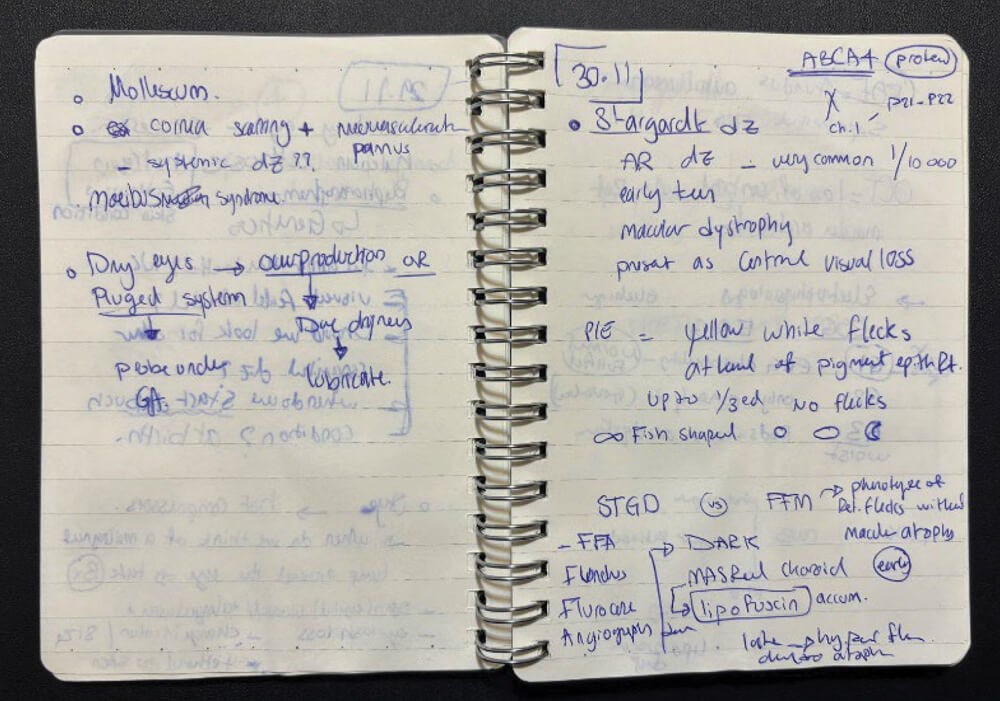 Molluscum.
cornea scarring + neovascularisation
pannus
- systemic dz ??
syndrome.
Dry eyes → overproduction OR
Pluged system
Due dryness
probe under
lubricate.
GA.
ABCA4 (protein)
30.11
ch.1
P21-P22
Stargardt dz
AR dz - very common 1/10 000
early teen
macular dystrophy
present as central visual loss
P/E = yellow white flecks
at level of pigment epith Rt.
up to 1/3 ed no flecks
Fish shaped
STGD vs FFM → phenotype of
Ret. flecks without
macular atrophy
- FFA → DARK
Fundus
choroid early
Flurocine
lipofuscin accum.
Angiography
late - hyper
atroph